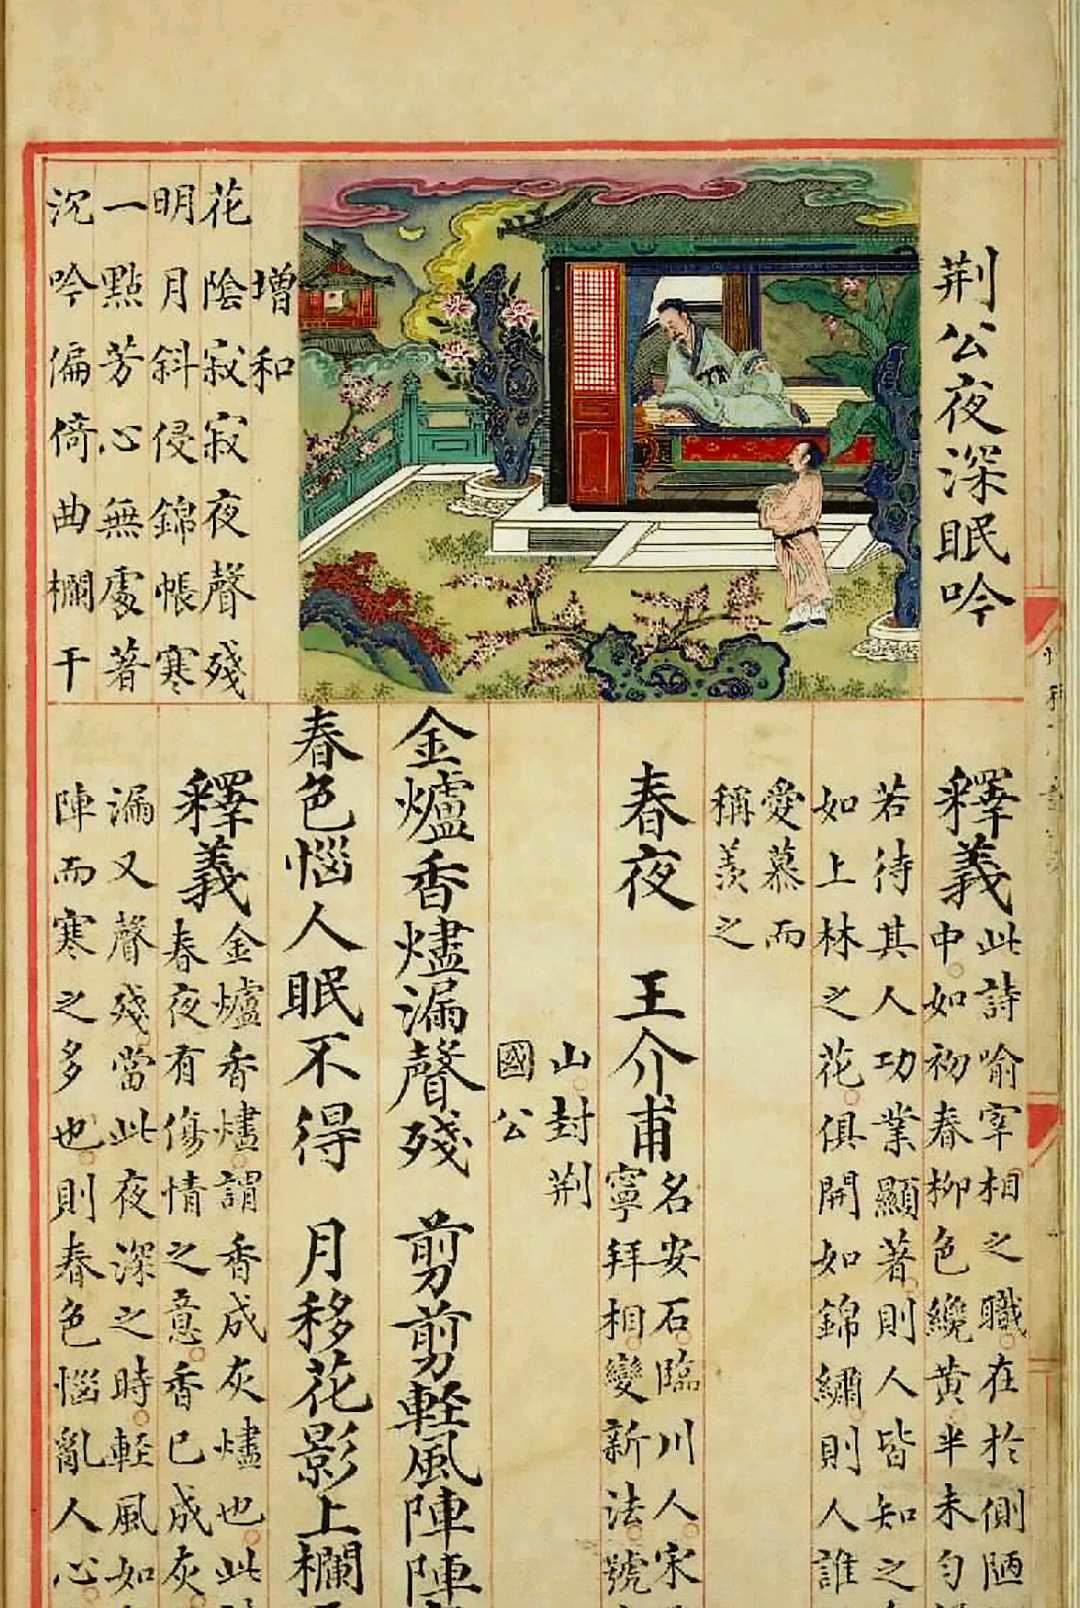 荆公夜深眠吟
增和
花陰寂寂夜聲殘
明月斜侵錦帳寒
一點芳心無處著
沉吟偏倚曲欄干
釋義
此詩喻宰相之職在於側陋
中如初春柳色纔黃半未勻
若待其人功業顯著則人皆知之
如上林之花俱開如錦繡則人誰
愛慕而
稱羨之
春夜 王介甫
名安石臨川人宋
寧拜相變新法號
山封荆
國公
金爐香燼漏聲殘 剪剪輕風陣陣
春色惱人眠不得 月移花影上欄
釋義
金爐香燼謂香成灰燼也此
春夜有傷情之意香已成灰
漏又聲殘當此夜深之時輕風如
陣而寒之多也則春色惱亂人心